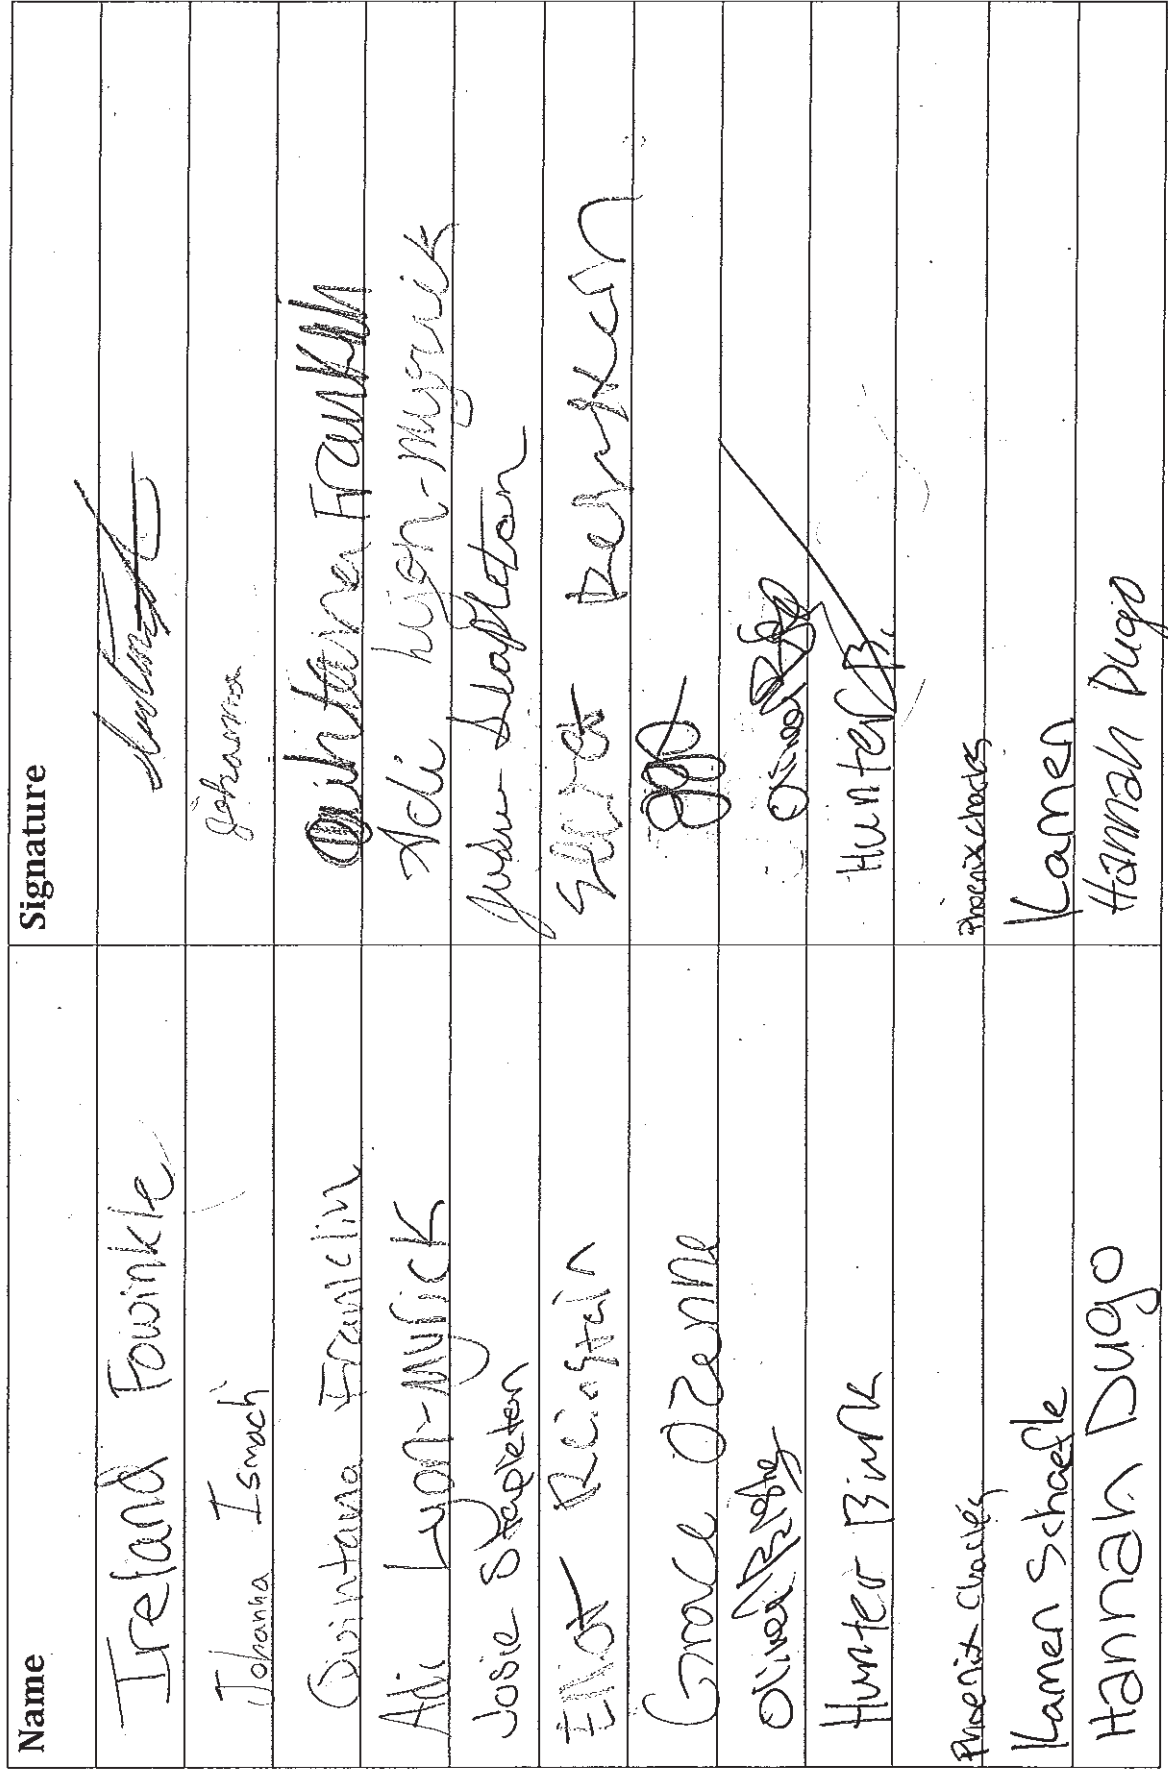 Name Signature
Ireland Fowinkle
Johanna Ismach Johanna
Quintana Franklin Quintana Franklin
Adi Lyon-Myrick Adi Lyon-Myrick
Josie Stapleton Josie Stapleton
Elliot Reinstein Elliot Reinstein
Grace Ozenne
Olivia Olivia
Hunter Birk Hunter B.
Phoenix Charles Phoenix Charles
Kamen Schaefle Kamen
Hannah Dugo Hannah Dugo